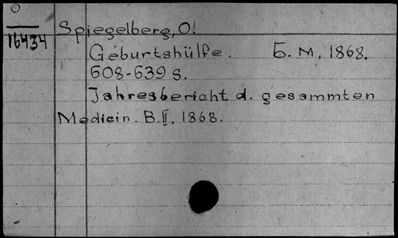 O
16434
Spiegelberg, O.
Geburtshülfe. Б. M, 1868.
608-639 s.
Jahresbericht d. gesammten
Medicin. B. II, 1868.